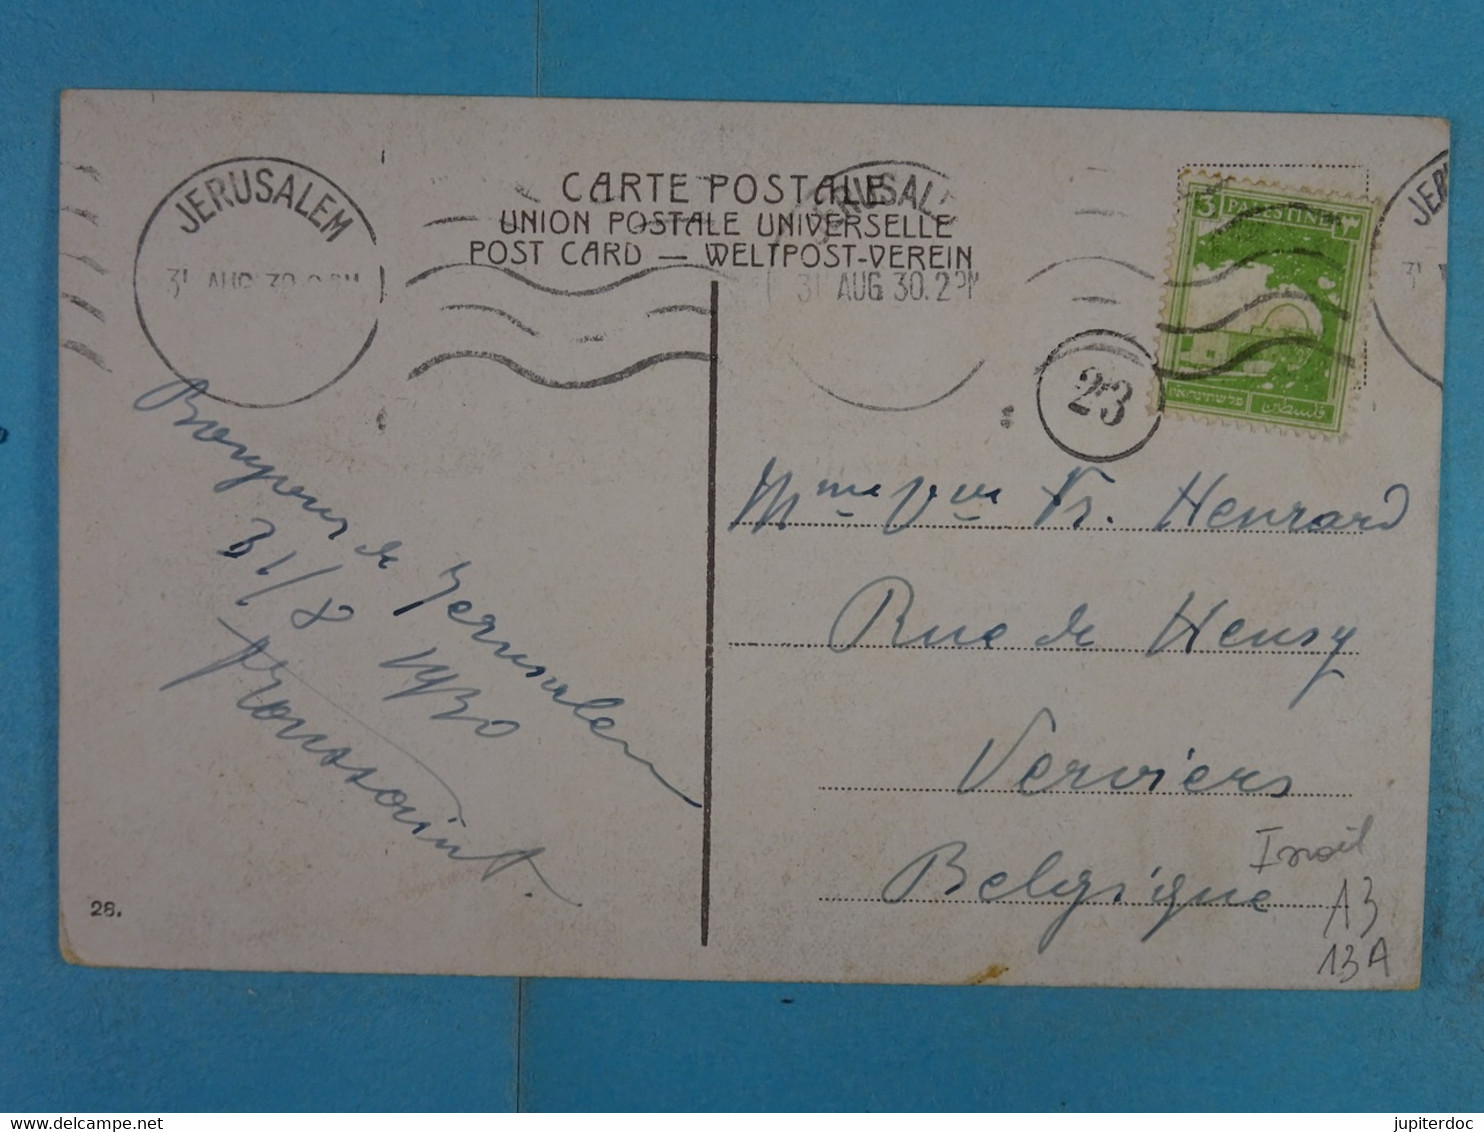 CARTE POSTALE
UNION POSTALE UNIVERSELLE
POST CARD — WELTPOST-VEREIN
JERUSALEM
31 AUG 30. 2 PM
JERUSALEM
31 AUG 30. 2 PM
JER
3 PALESTINE ٣
פלשתינה א״י فلسطين
23
Bonjour de Jerusalem
31/8 1930
Mme Vve Fr. Henrard
Rue de Heusy
Verviers
Belgique
A3
13A
28.
jupiterdoc